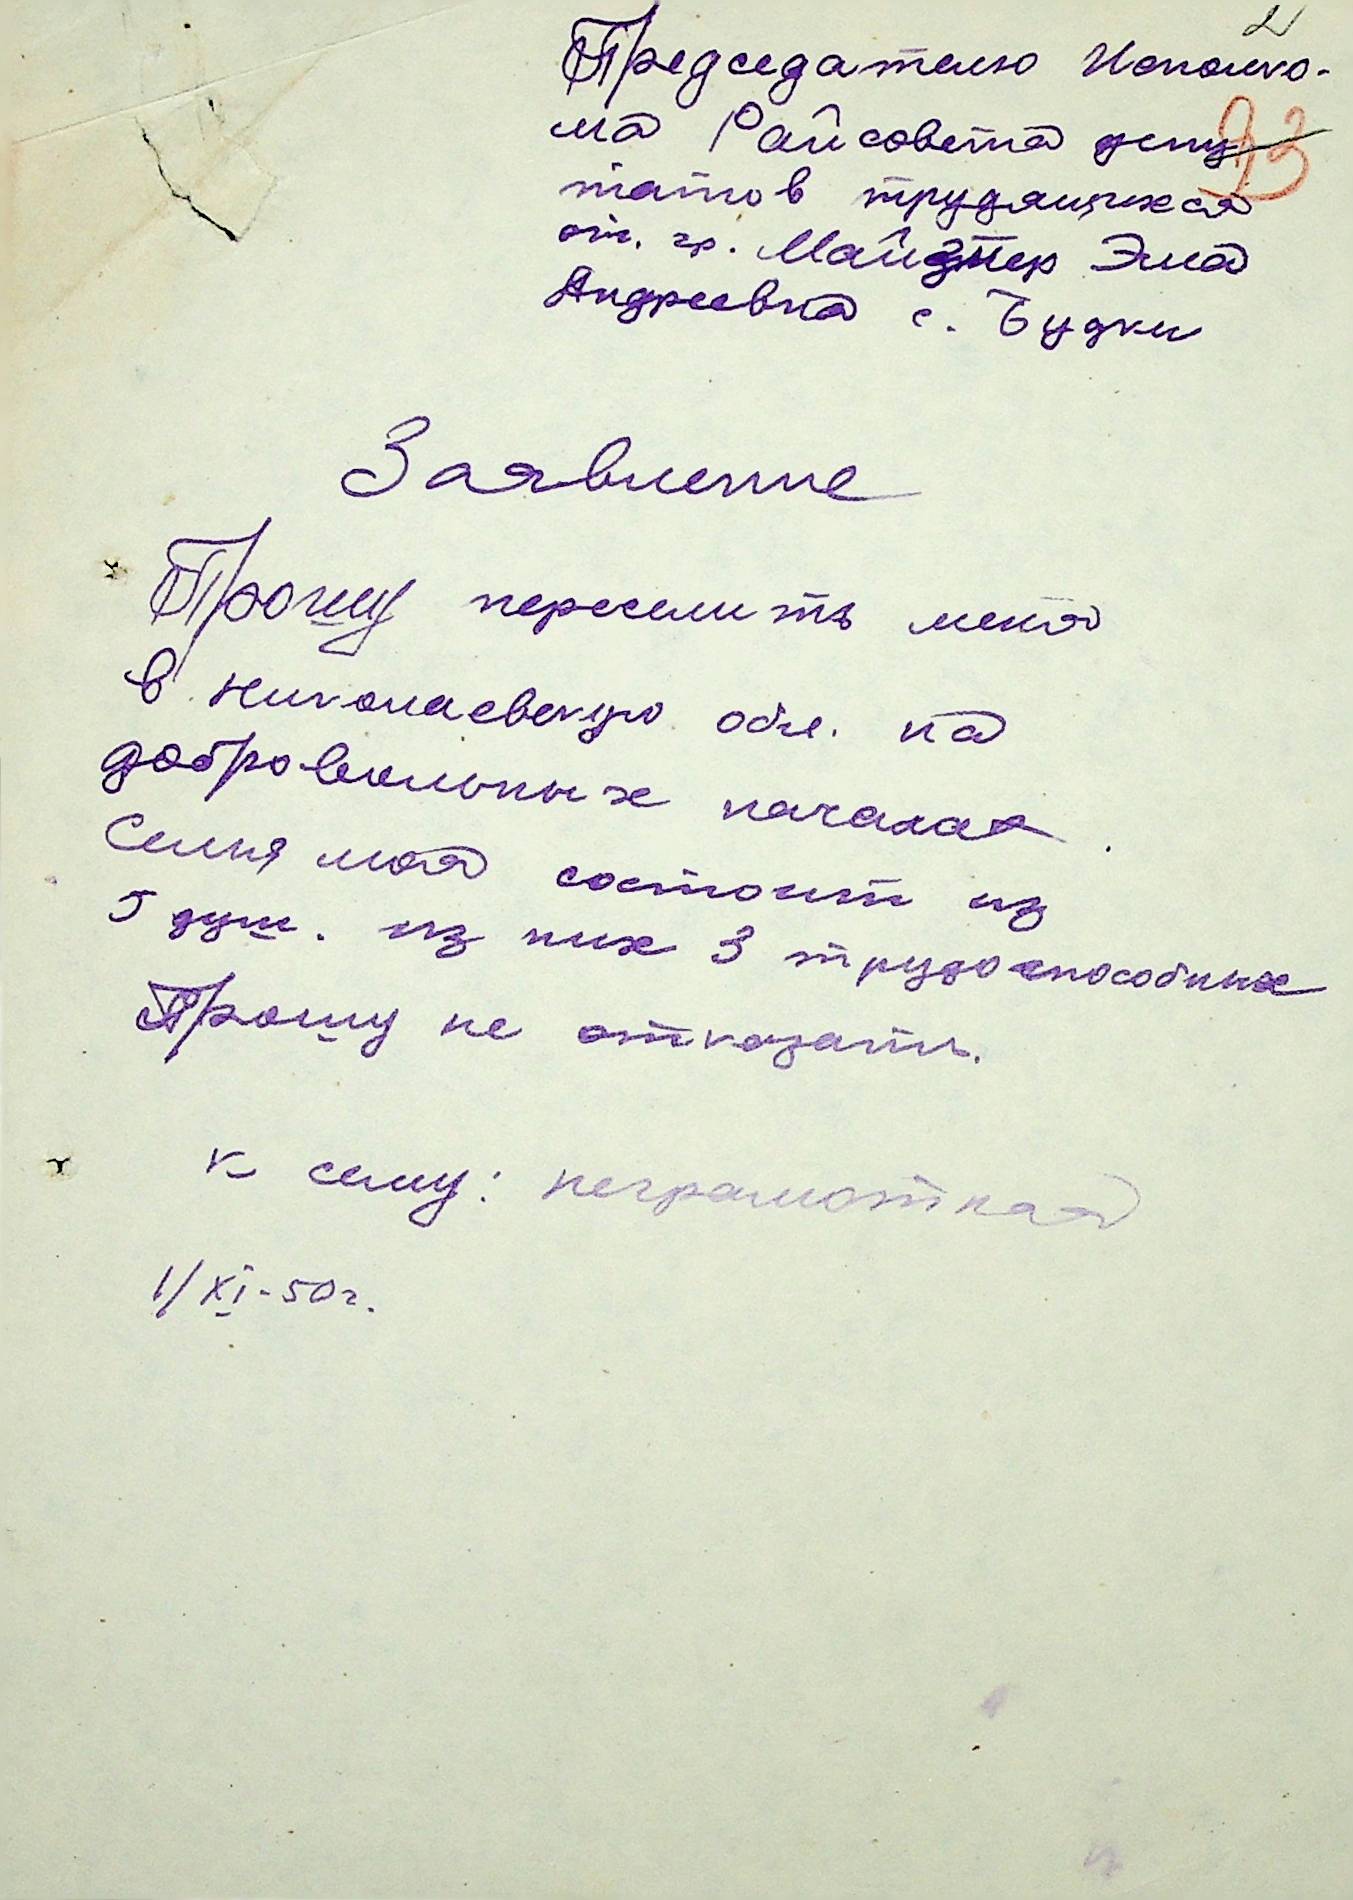 2
Председателю Исполко-
ма Райсовета депу
93
татов трудящихся
от. гр. Майзнер Эма
Андреевна с. Будки
Заявление
Прошу переселить меня
в николаевскую обл. на
добровольных началах.
Семья моя состоит из
5 душ. из них 3 трудоспособных
Прошу не отказать.
к сему: неграмотная
1/XI-50г.